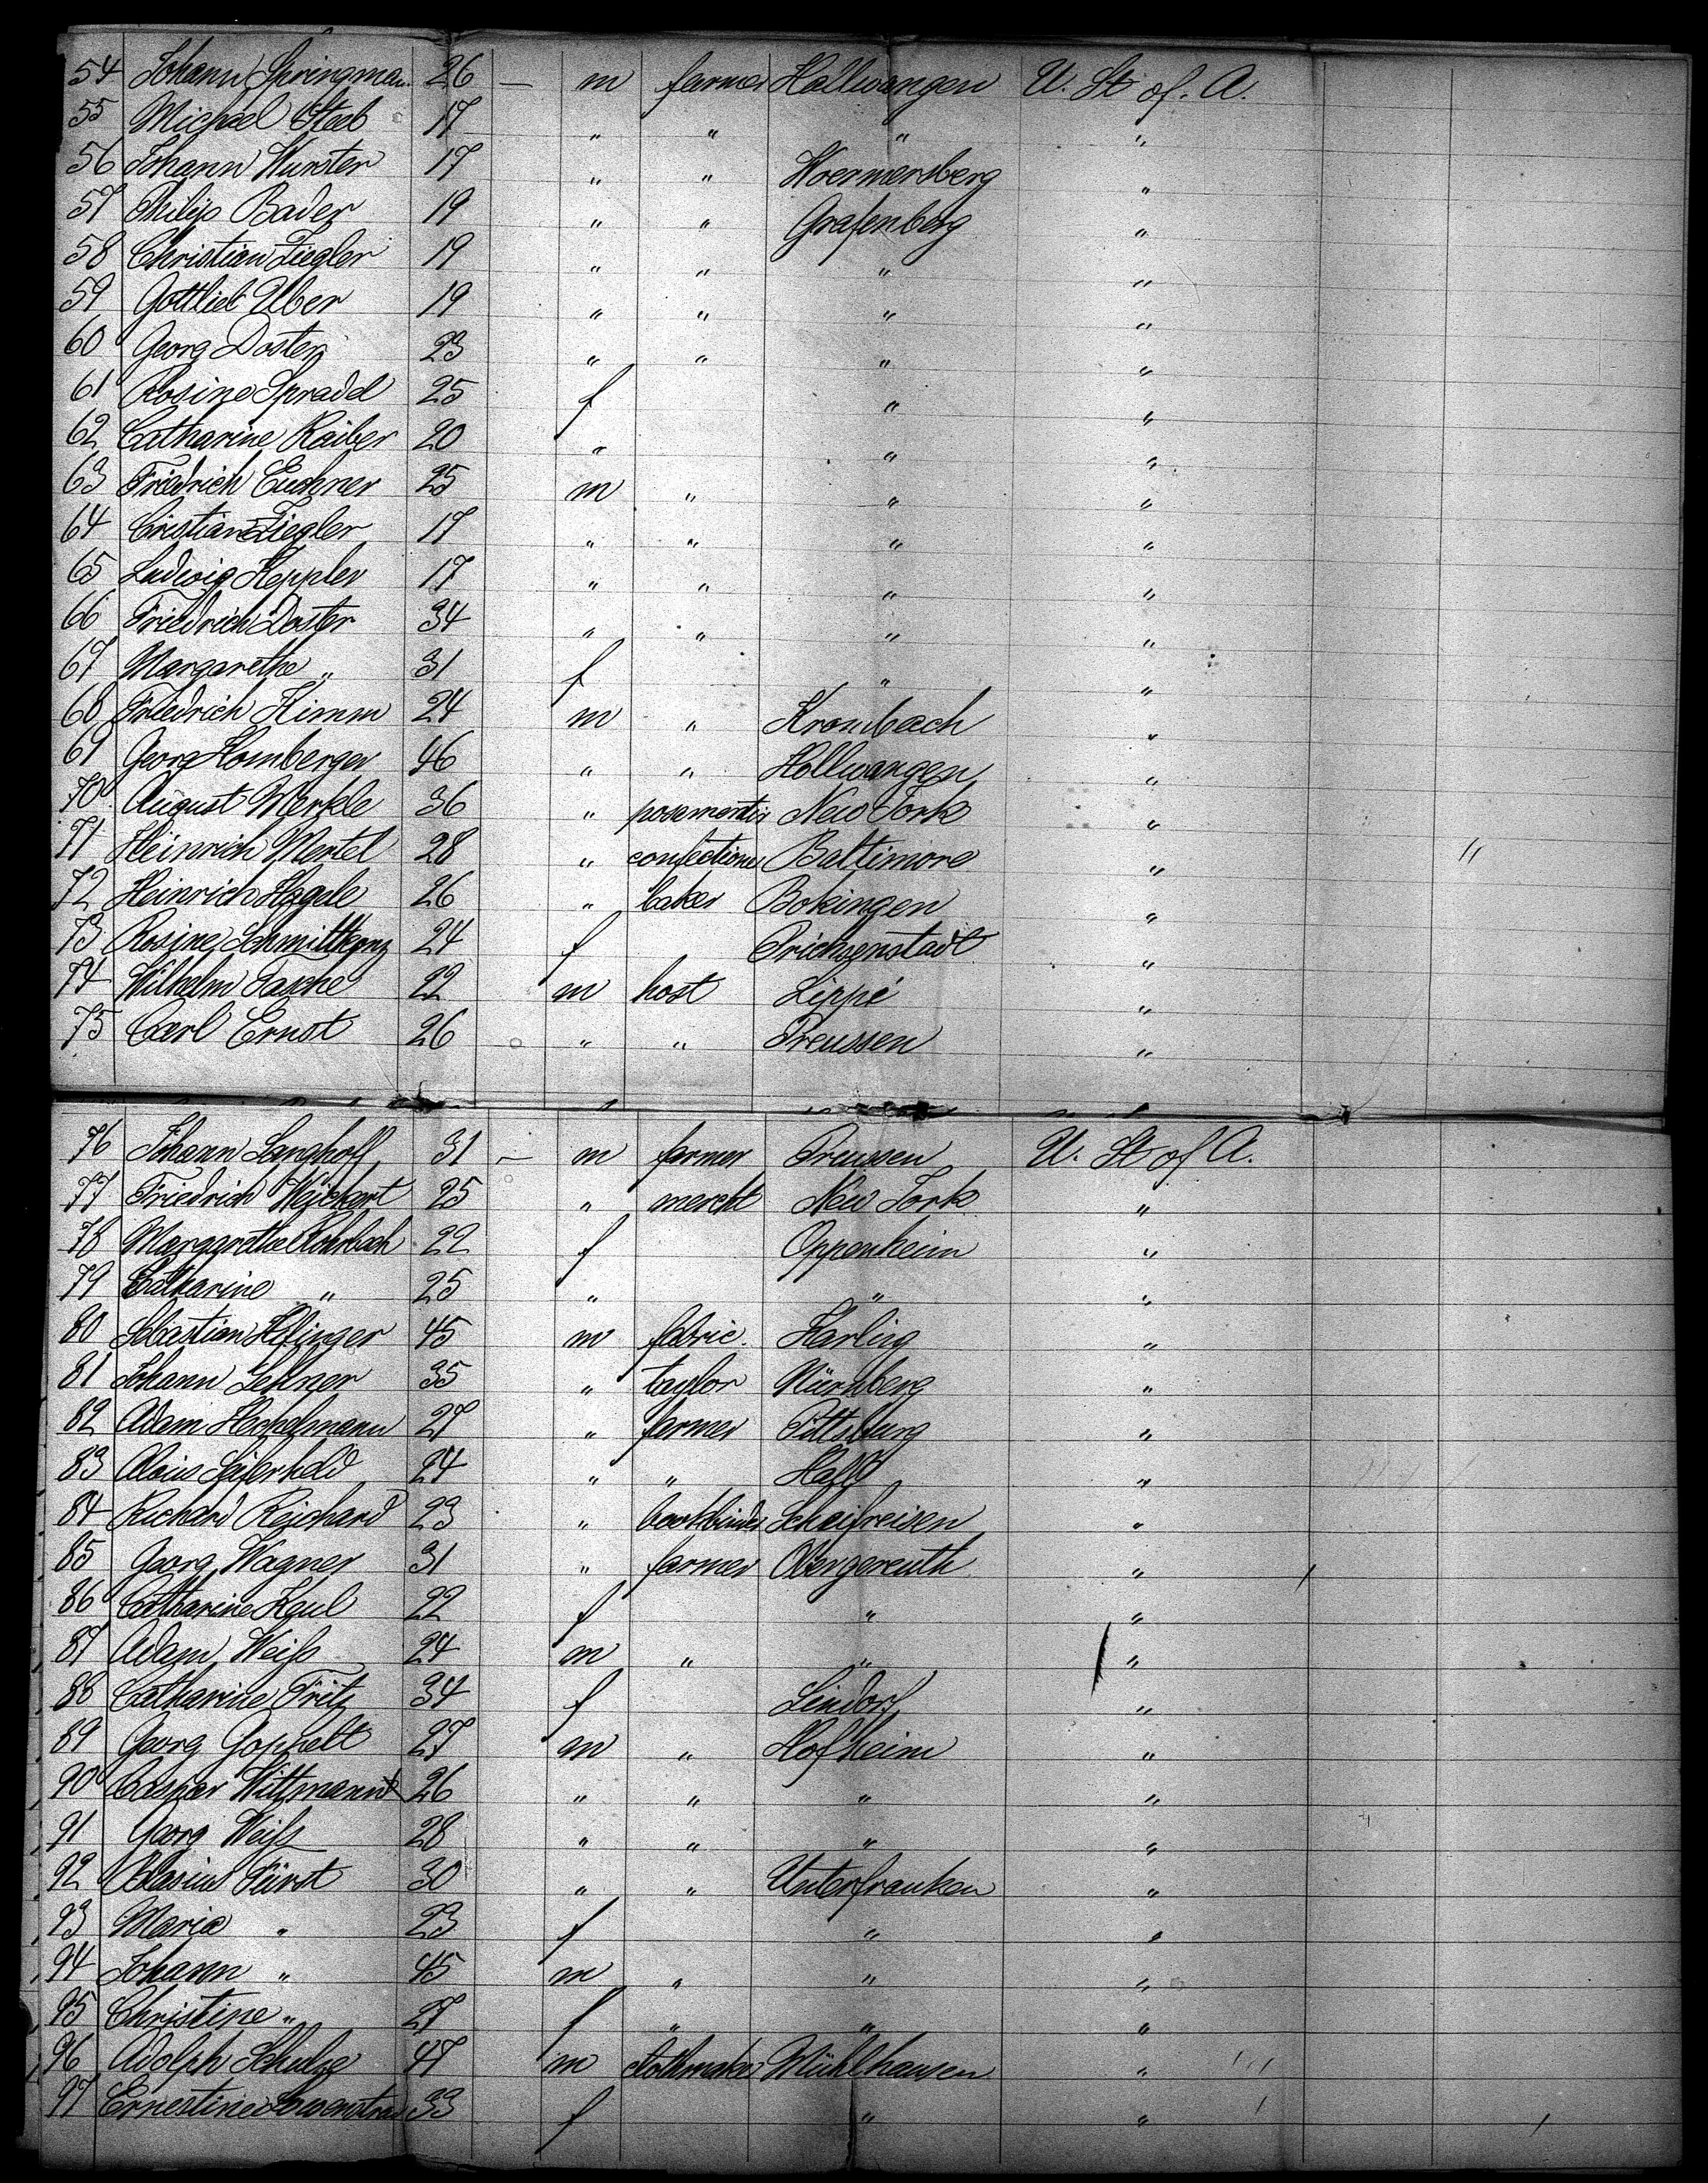 54 Johann Springman 26 — m farmer Hallwangen U. St of. A.
55 Michael Steeb 17 " " " "
56 Johann Wurster 17 " " Woermersberg "
57 Philip Bader 19 " " Grafenberg "
58 Christian Ziegler 19 " " " "
59 Gottlieb Uber 19 " " " "
60 Georg Doster 23 " " " "
61 Rosine Spradel 25 f " "
62 Catharine Raiber 20 " " "
63 Friedrich Euchner 25 m " " "
64 Cristian Ziegler 17 " " " "
65 Ludwig Heppler 17 " " " "
66 Friedrich Doster 34 " " " "
67 Margarethe " 31 f " "
68 Friedrich Himm 24 m " Krombach "
69 Georg Homberger 46 " " Hollwangen "
70 August Merkle 36 " New York "
71 Heinrich Mertel 28 " confectioner Baltimore "
72 Heinrich Hagele 26 " baker Bokingen "
73 Rosine 24 f Prichsenstadt "
74 Wilhelm Tasche 22 m host Lippe "
75 Carl Ernst 26 " " Preussen "
76 Johann Langhoff 31 — m farmer Preussen U. St of A.
77 Friedrich Weickert 25 " mercht New York "
78 Margarethe Rohrbach 22 f Oppenheim "
79 Catharine " 25 " " "
80 Sebastian 45 m fabric. Harling "
81 Johann Lehner 35 " taylor Nürnberg "
82 Adam Hechelmann 27 " farmer Pittsburg "
83 Alois 24 " " Hall "
84 Richard Reichard 23 " bookbinder "
85 Georg Wagner 31 " farmer Obergereuth "
86 Catharine Keul 22 f " "
87 Adam Weiß 24 m " " "
88 Catharine Fritz 34 f Lindorf "
89 Georg Goppelt 27 m " Hofheim "
90 Caspar Wittmann 26 " " " "
91 Georg Weiß 28 " " " "
92 Blasius Fürst 30 " " Unterfranken "
93 Maria " 23 f " "
94 Johann " 45 m " " "
95 Christine " 27 f " " "
96 Adolph Schulze 47 m clothmaker Mühlhausen "
97 Ernestine 33 f " "